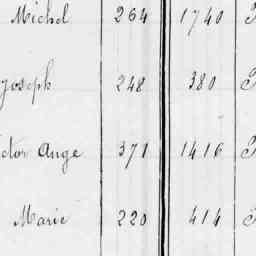 Michel 264 1740
Joseph 248 380
ictor Ange 371 1416
Marie 220 414